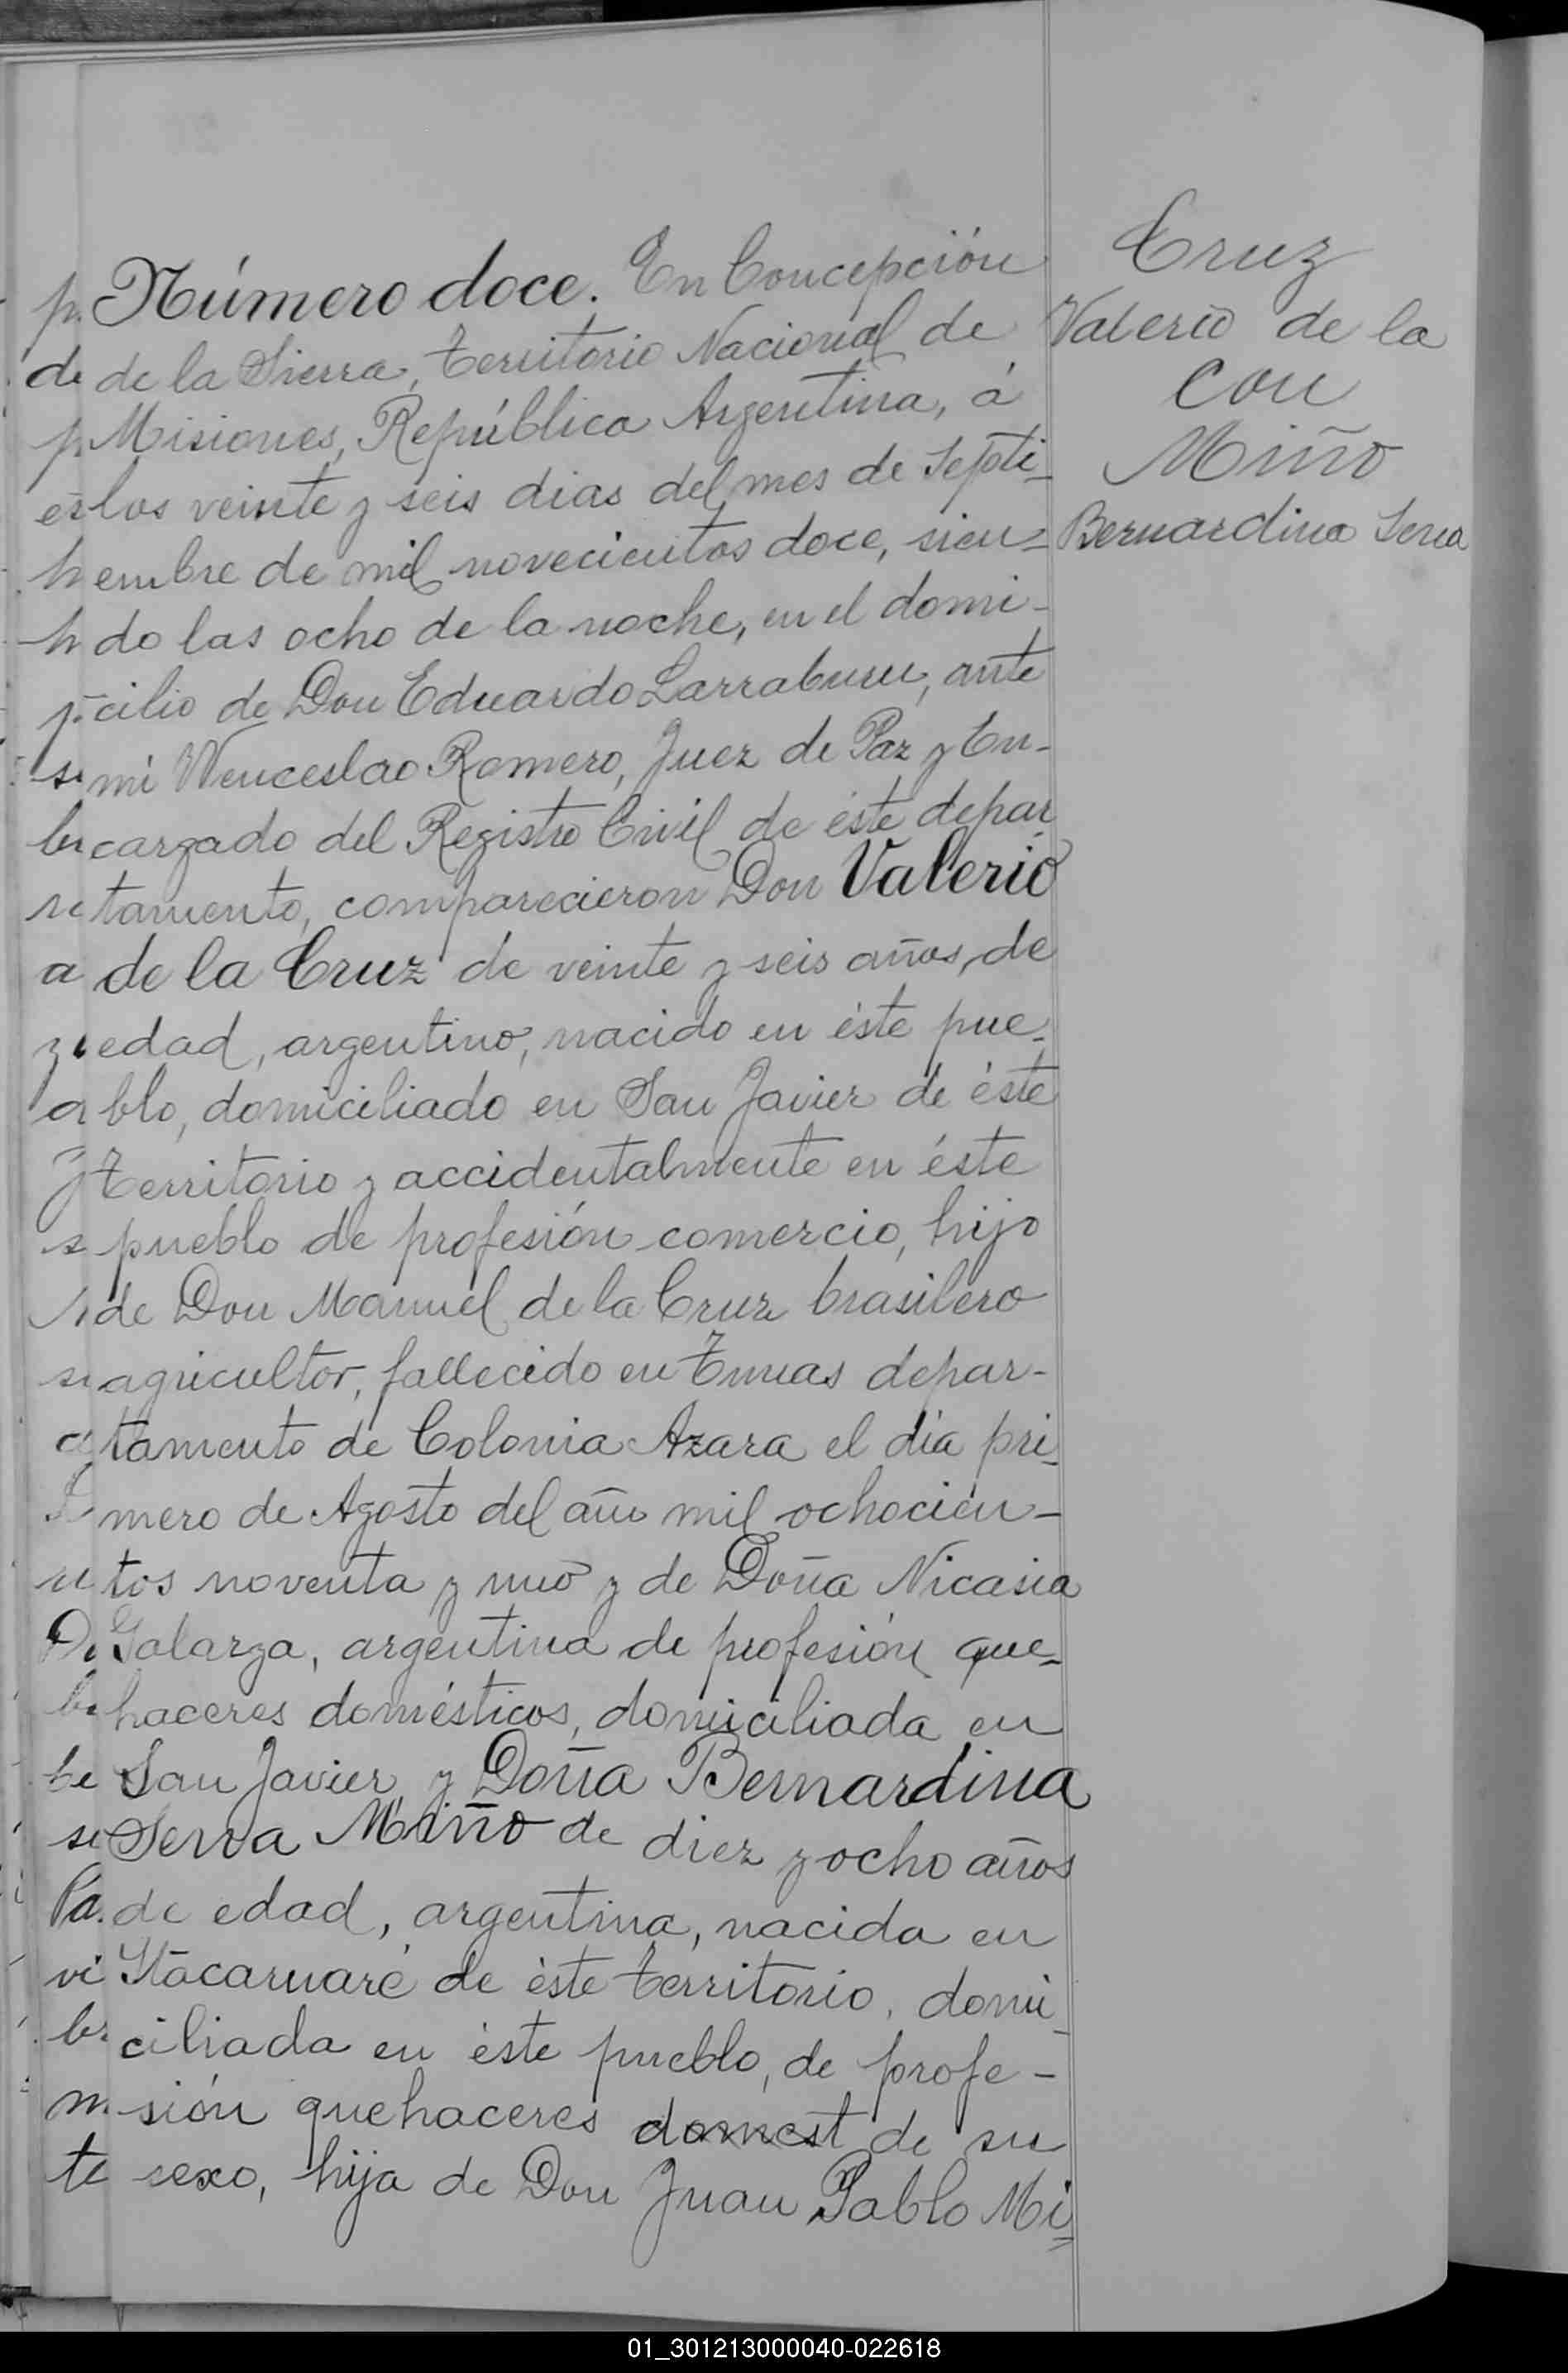 Número doce. En Concepción
de la Sierra, Territorio Nacional de
Misiones, República Argentina, á
los veinte y seis dias del mes de Septi-
embre de mil novecientos doce, sien-
do las ocho de la noche, en el domi-
cilio de Don Eduardo Larraburu, ante
mi Wenceslao Romero, Juez de Paz y En-
cargado del Registro Civil de éste depar
tamento, comparecieron Don Valerio
de la Cruz de veinte y seis años, de
edad, argentino, nacido en éste pue-
blo, domiciliado en San Javier de éste
Territorio y accidentalmente en éste
pueblo de profesión comercio, hijo
de Don Manuel de la Cruz brasilero
agricultor, fallecido en Tunas depar-
tamento de Colonia Azara el dia pri-
mero de Agosto del año mil ochocien-
tos noventa y uno y de Doña Nicasia
Galarza, argentina de profesión que-
haceres domésticos, domiciliada en
San Javier y Doña Bernardina
Serra Miño de diez y ocho años
de edad, argentina, nacida en
Itacaruaré de éste territorio, domi-
ciliada en éste pueblo, de profe-
sión quehaceres domest de su
sexo, hija de Don Juan Pablo Mi=
Cruz
Valerio de la
con
Miño
Bernardina Serra
01_301213000040-022618